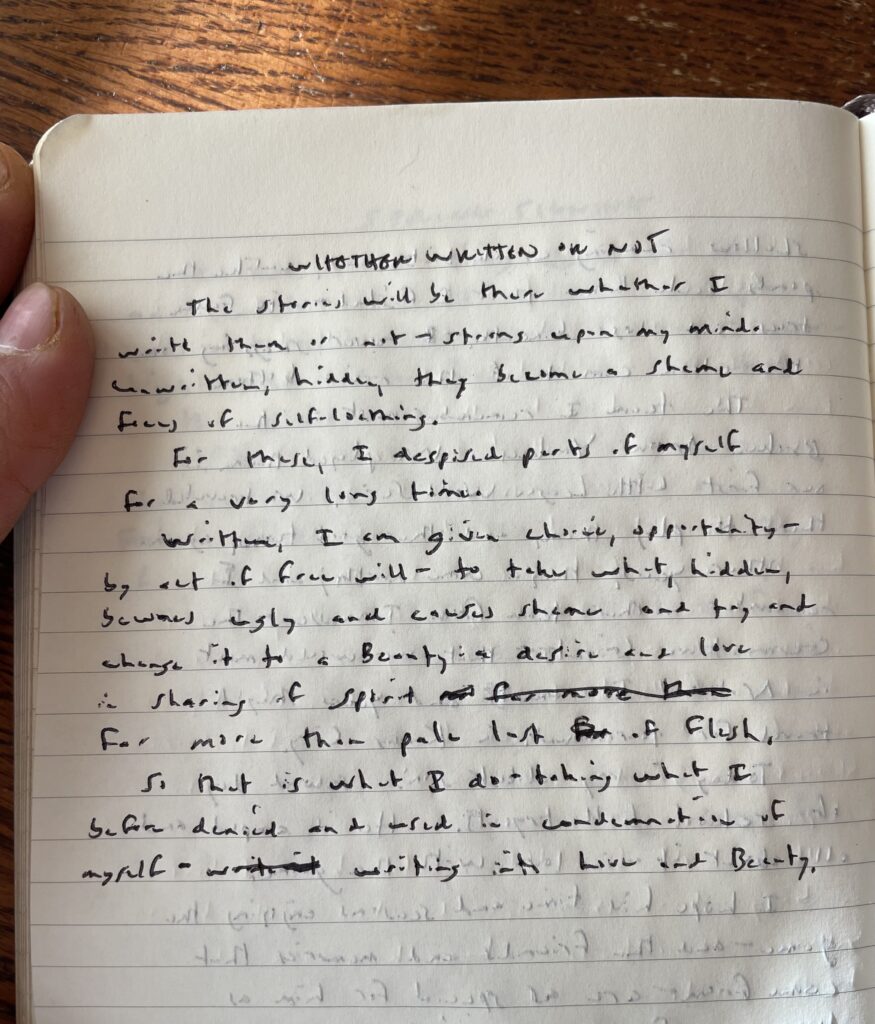 WHETHER WRITTEN OR NOT
The stories will be there whether I
write them or not - strong upon my mind.
unwritten, hidden, they become a shame and
focus of self-loathing.
For these, I despised parts of myself
for a very long time.
Written, I am given choice, opportunity-
by act of free will - to take what, hidden,
becomes ugly and causes shame and
change it to a Beauty: a desire and love
in sharing of spirit far more than
Far more than pale lust of Flesh.
So that is what I do - taking what I
before denied and used in condemnation of
myself - writing into Love and Beauty.